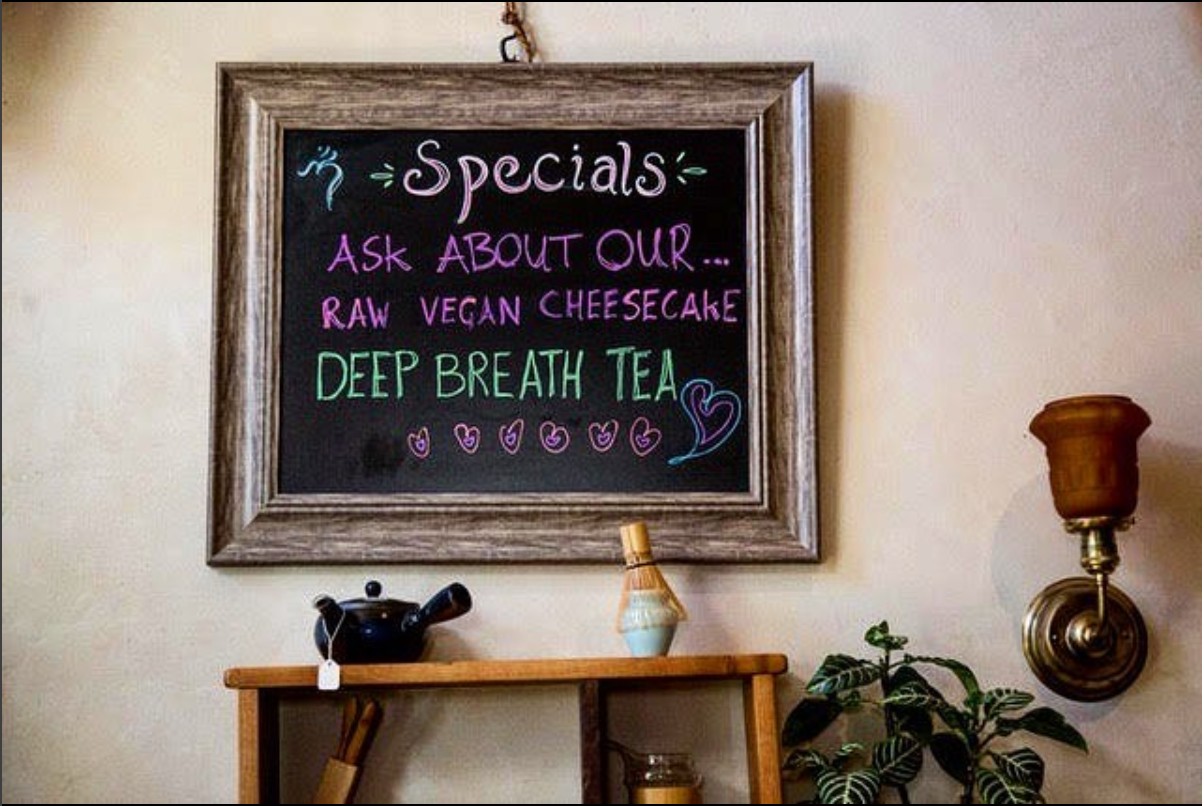 Specials
ASK ABOUT OUR...
RAW VEGAN CHEESECAKE
DEEP BREATH TEA